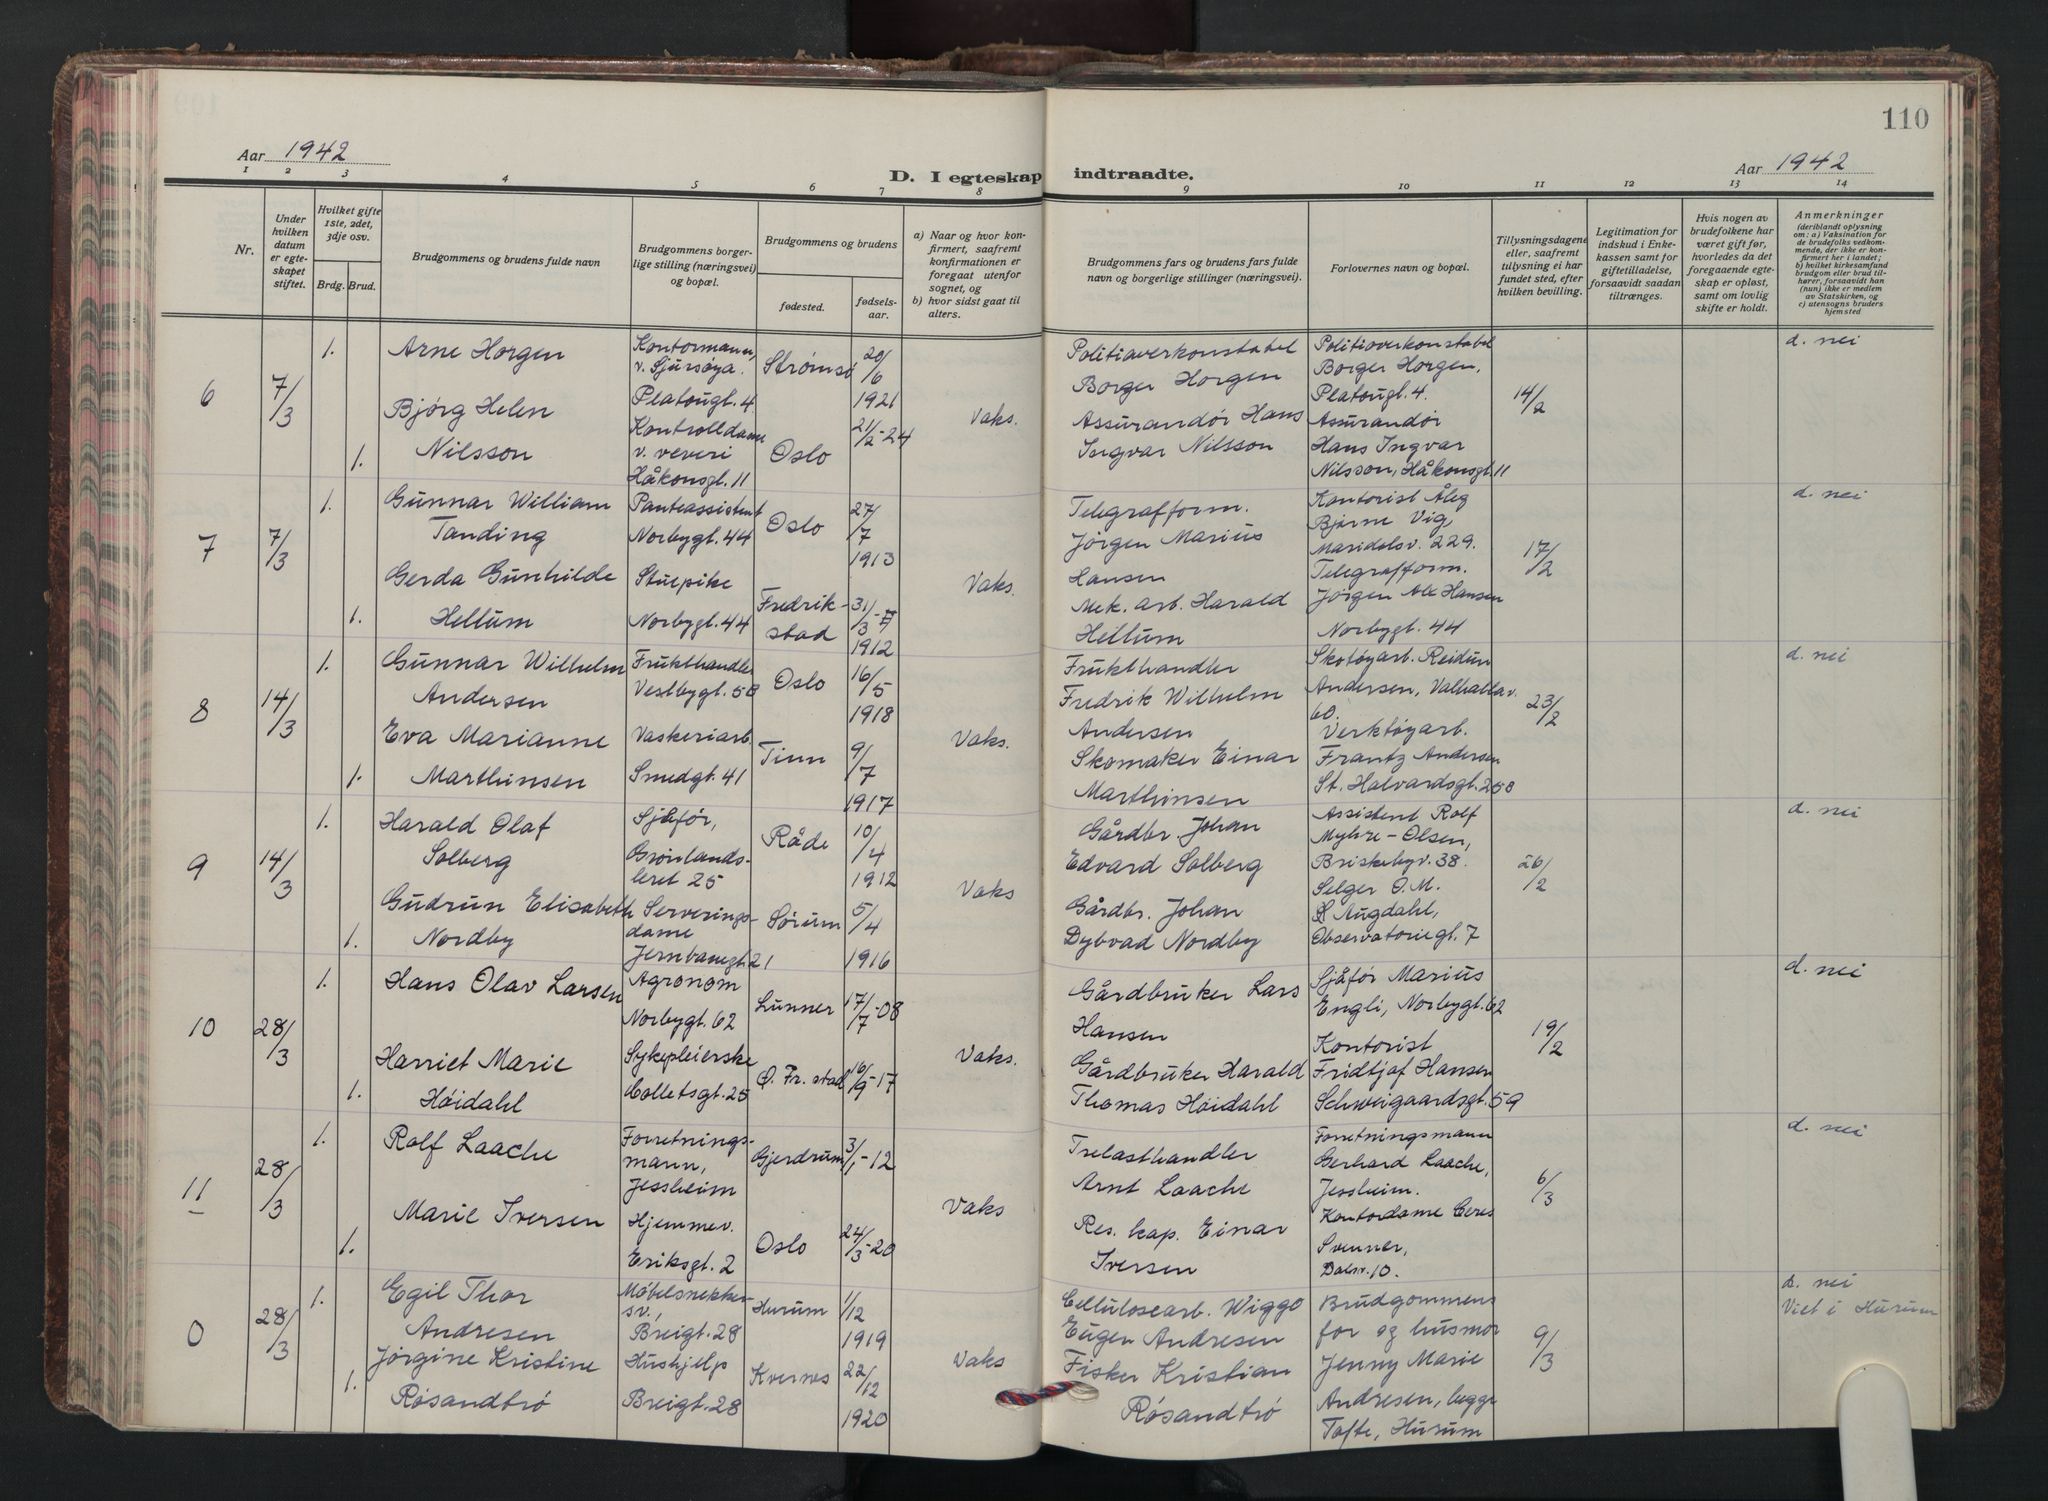 110
Aar 1942
D. I egteskap indtraadte.
Aar 1942
1 2 3 4 5 6 7 8 9 10 11 12 13 14
Nr.
Under hvilken datum er egteskapet stiftet.
Hvilket gifte 1ste, 2det, 3dje osv.
Brdg. Brud.
Brudgommens og brudens fulde navn
Brudgommens borgerlige stilling (næringsvei) og bopæl.
Brudgommens og brudens
fødested.
fødselsaar.
a) Naar og hvor konfirmert, saafremt konfirmationen er foregaat utenfor sognet, og
b) hvor sidst gaat til alters.
Brudgommens fars og brudens fars fulde navn og borgerlige stillinger (næringsvei).
Forlovernes navn og bopæl.
Tillysningsdagene eller, saafremt tillysning ei har fundet sted, efter hvilken bevilling.
Legitimation for indskud i Enkekassen samt for giftetilladelse, forsaavidt saadan tiltrænges.
Hvis nogen av brudefolkene har været gift før, hvorledes da det foregaaende egteskap er opløst, samt om lovlig skifte er holdt.
Anmerkninger
(deriblandt oplysning om: a) Vaksination for de brudefolks vedkommende, der ikke er konfirmert her i landet; b) hvilket kirkesamfund brudgom eller brud tilhører, forsaavidt han (hun) ikke er medlem av Statskirken, og c) utensogns bruders hjemsted
6
7/3
1.
Arne Horgen
Kontormann,
v. Sjursøya.
Platougt. 4
Strømsø
20/6
1921
Bjørg Helen
Nilsson
1.
Kontrolldame
v. veveri
Håkonsgt. 11
Oslo
21/2-24
Vaks.
Politioverkonstabel
Borger Horgen
Assurandør Hans
Ingvar Nilsson
Politioverkonstabel
Borger Horgen,
Platougt. 4.
Assurandør
Hans Ingvar
Nilsson, Håkonsgt. 11
14/2
d. nei
7
7/3
1.
Gunnar William
Tanding
Panteassistent
Norbygt. 44
Oslo
27/7
1913
Gerda Gunhilde
Hellum
1.
Stuepike
Norbygt. 44
Fredrik-
stad
31/3
1912
Vaks.
Telegrafform.
Jörgen Marius
Hansen
Mek. arb. Harald
Hellum
Kontorist
Bjarne Vig,
Maridalsv. 229.
Telegrafform.
Jörgen Alx Hansen
Norbygt. 44
17/2
d. nei
8
14/3
1.
Gunnar Wilhelm
Andersen
Frukthandler
Vestbygt. 58
Oslo
16/5
1918
Eva Marianne
Marthinsen
1.
Vaskeriarb.
Smedgt. 41
Tinn
9/7
1917
Vaks.
Frukthandler
Fredrik Wilhelm
Andersen
Skomaker Einar
Marthinsen
Skotøyarb. Reidun
Andersen, Valhallav.
60.
Verktøyarb.
Frantz Andersen
St. Halvardsgt. 25
23/2
d. nei
9
14/3
1.
Harald Olaf
Solberg
Sjåfør,
Grønlands-
leret 25
Råde
10/4
1912
Gudrun Elisabeth
Nordby
1.
Serverings-
dame
Jernbanegt. 21
Sørum
5/4
1916
Vaks
Gårdbr. Johan
Edvard Solberg
Gårdbr. Johan
Dybvad Nordby
Assistent Rolf
Myhre-Olsen,
Briskebyv. 38.
Selger O.M.
Augdahl,
Observatoriegt. 7
26/2
d. nei
10
28/3
1.
Hans Olav Larsen
Agronom
Norbygt. 62
Lunner
17/7-08
Harriet Marie
Høidahl
1.
Sykepleierske
Colletsgt. 25
Ø. Fr. stad
16/9-17
Vaks.
Gårdbruker Lars
Hansen
Gårdbruker Harald
Thomas Høidahl
Sjåfør Marius
Engli, Norbygt. 62
Kontorist
Fridtjof Hansen
Schweigaardsgt. 59
19/2
d. nei
11
28/3
1.
Rolf Laache
Forretnings-
mann,
Jessheim
Gjerdrum
3/1-12
Marie Iversen
1.
Hjemmev.
Eriksgt. 2
Oslo
24/3-20
Vaks
Trelasthandler
Arnt Laache
Res. kap. Einar
Iversen
Forretningsmann
Gerhard Laache,
Jessheim.
Kontordame Ceres
Svenner,
Dalsv. 10.
6/3
d. nei
0
28/3
1.
Egil Thor
Andresen
Møbelsnekker-
sv.,
Breigt. 28
Hurum
1/12
1919
Jørgine Kristine
Røsandtrø
1.
Hushjelp
Breigt. 28
Kvernes
22/12
1920
Vaks
Cellulosearb. Wiggo
Eugen Andresen
Fisker Kristian
Røsandtrø
Brudgommens
far og husmor
Jenny Marie
Andresen, begge
Tofte, Hurum
9/3
d. nei
Viet i Hurum